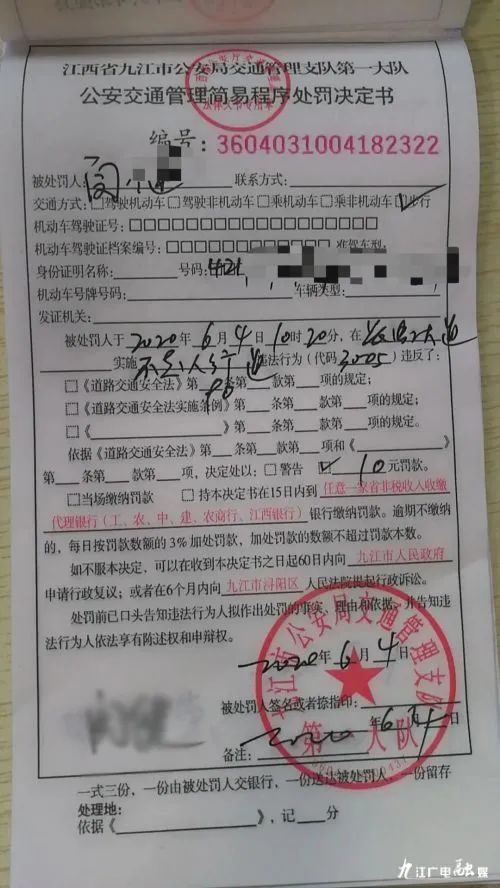 江西省九江市公安局交通管理支队第一大队
公安交通管理简易程序处罚决定书
编号: 3604031004182322
被处罚人: 联系方式:
交通方式:□驾驶机动车□驾驶非机动车□乘机动车□乘非机动车☑步行
机动车驾驶证号:
机动车驾驶证档案编号: 准驾车型:
身份证明名称: 号码:421
机动车号牌号码: 车辆类型:
发证机关:
被处罚人于2020年6月4日10时20分,在 大道
实施不走人行道违法行为(代码3005)违反了:
□《道路交通安全法》第 条第 款第 项的规定;
□《道路交通安全法实施条例》第 条第 款第 项的规定;
□《 》第 条第 款第 项的规定。
依据《道路交通安全法》第 条第 款第 项和《 》
第 条第 款第 项,决定处以:□警告 ☑10元罚款。
□当场缴纳罚款 □持本决定书在15日内到任意一家省非税收入收缴
代理银行(工、农、中、建、农商行、江西银行)银行缴纳罚款。逾期不缴纳
的,每日按罚款数额的3%加处罚款,加处罚款的数额不超过罚款本数。
如不服本决定,可以在收到本决定书之日起60日内向九江市人民政府
申请行政复议;或者在6个月内向九江市浔阳区人民法院提起行政诉讼。
处罚前已口头告知违法行为人拟作出处罚的事实、理由和依据,并告知违
法行为人依法享有陈述权和申辩权。
2020年6月4日
被处罚人签名或者捺指印:
2020年6月4日
备注:
九江市公安局交通管理支队
第一大队
一式三份,一份由被处罚人交银行,一份送达被处罚人,一份留存
处理地:
依据《 》,记 分
九江广电融媒